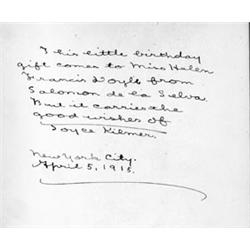 This little birthday
gift comes to Miss Helen
Francis Doyle from
Salomon de la Selva.
But it carries the
good wishes of
Joyce Kilmer.
New York City.
April 5, 1915.